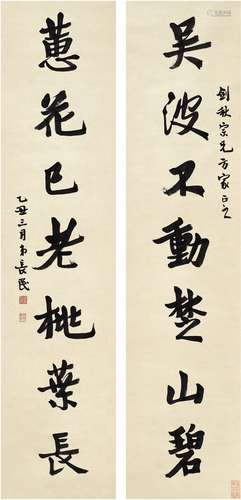 吳波不動楚山碧
劍秋宗兄方家正之
蕙花已老桃葉長
乙丑三月弟長民